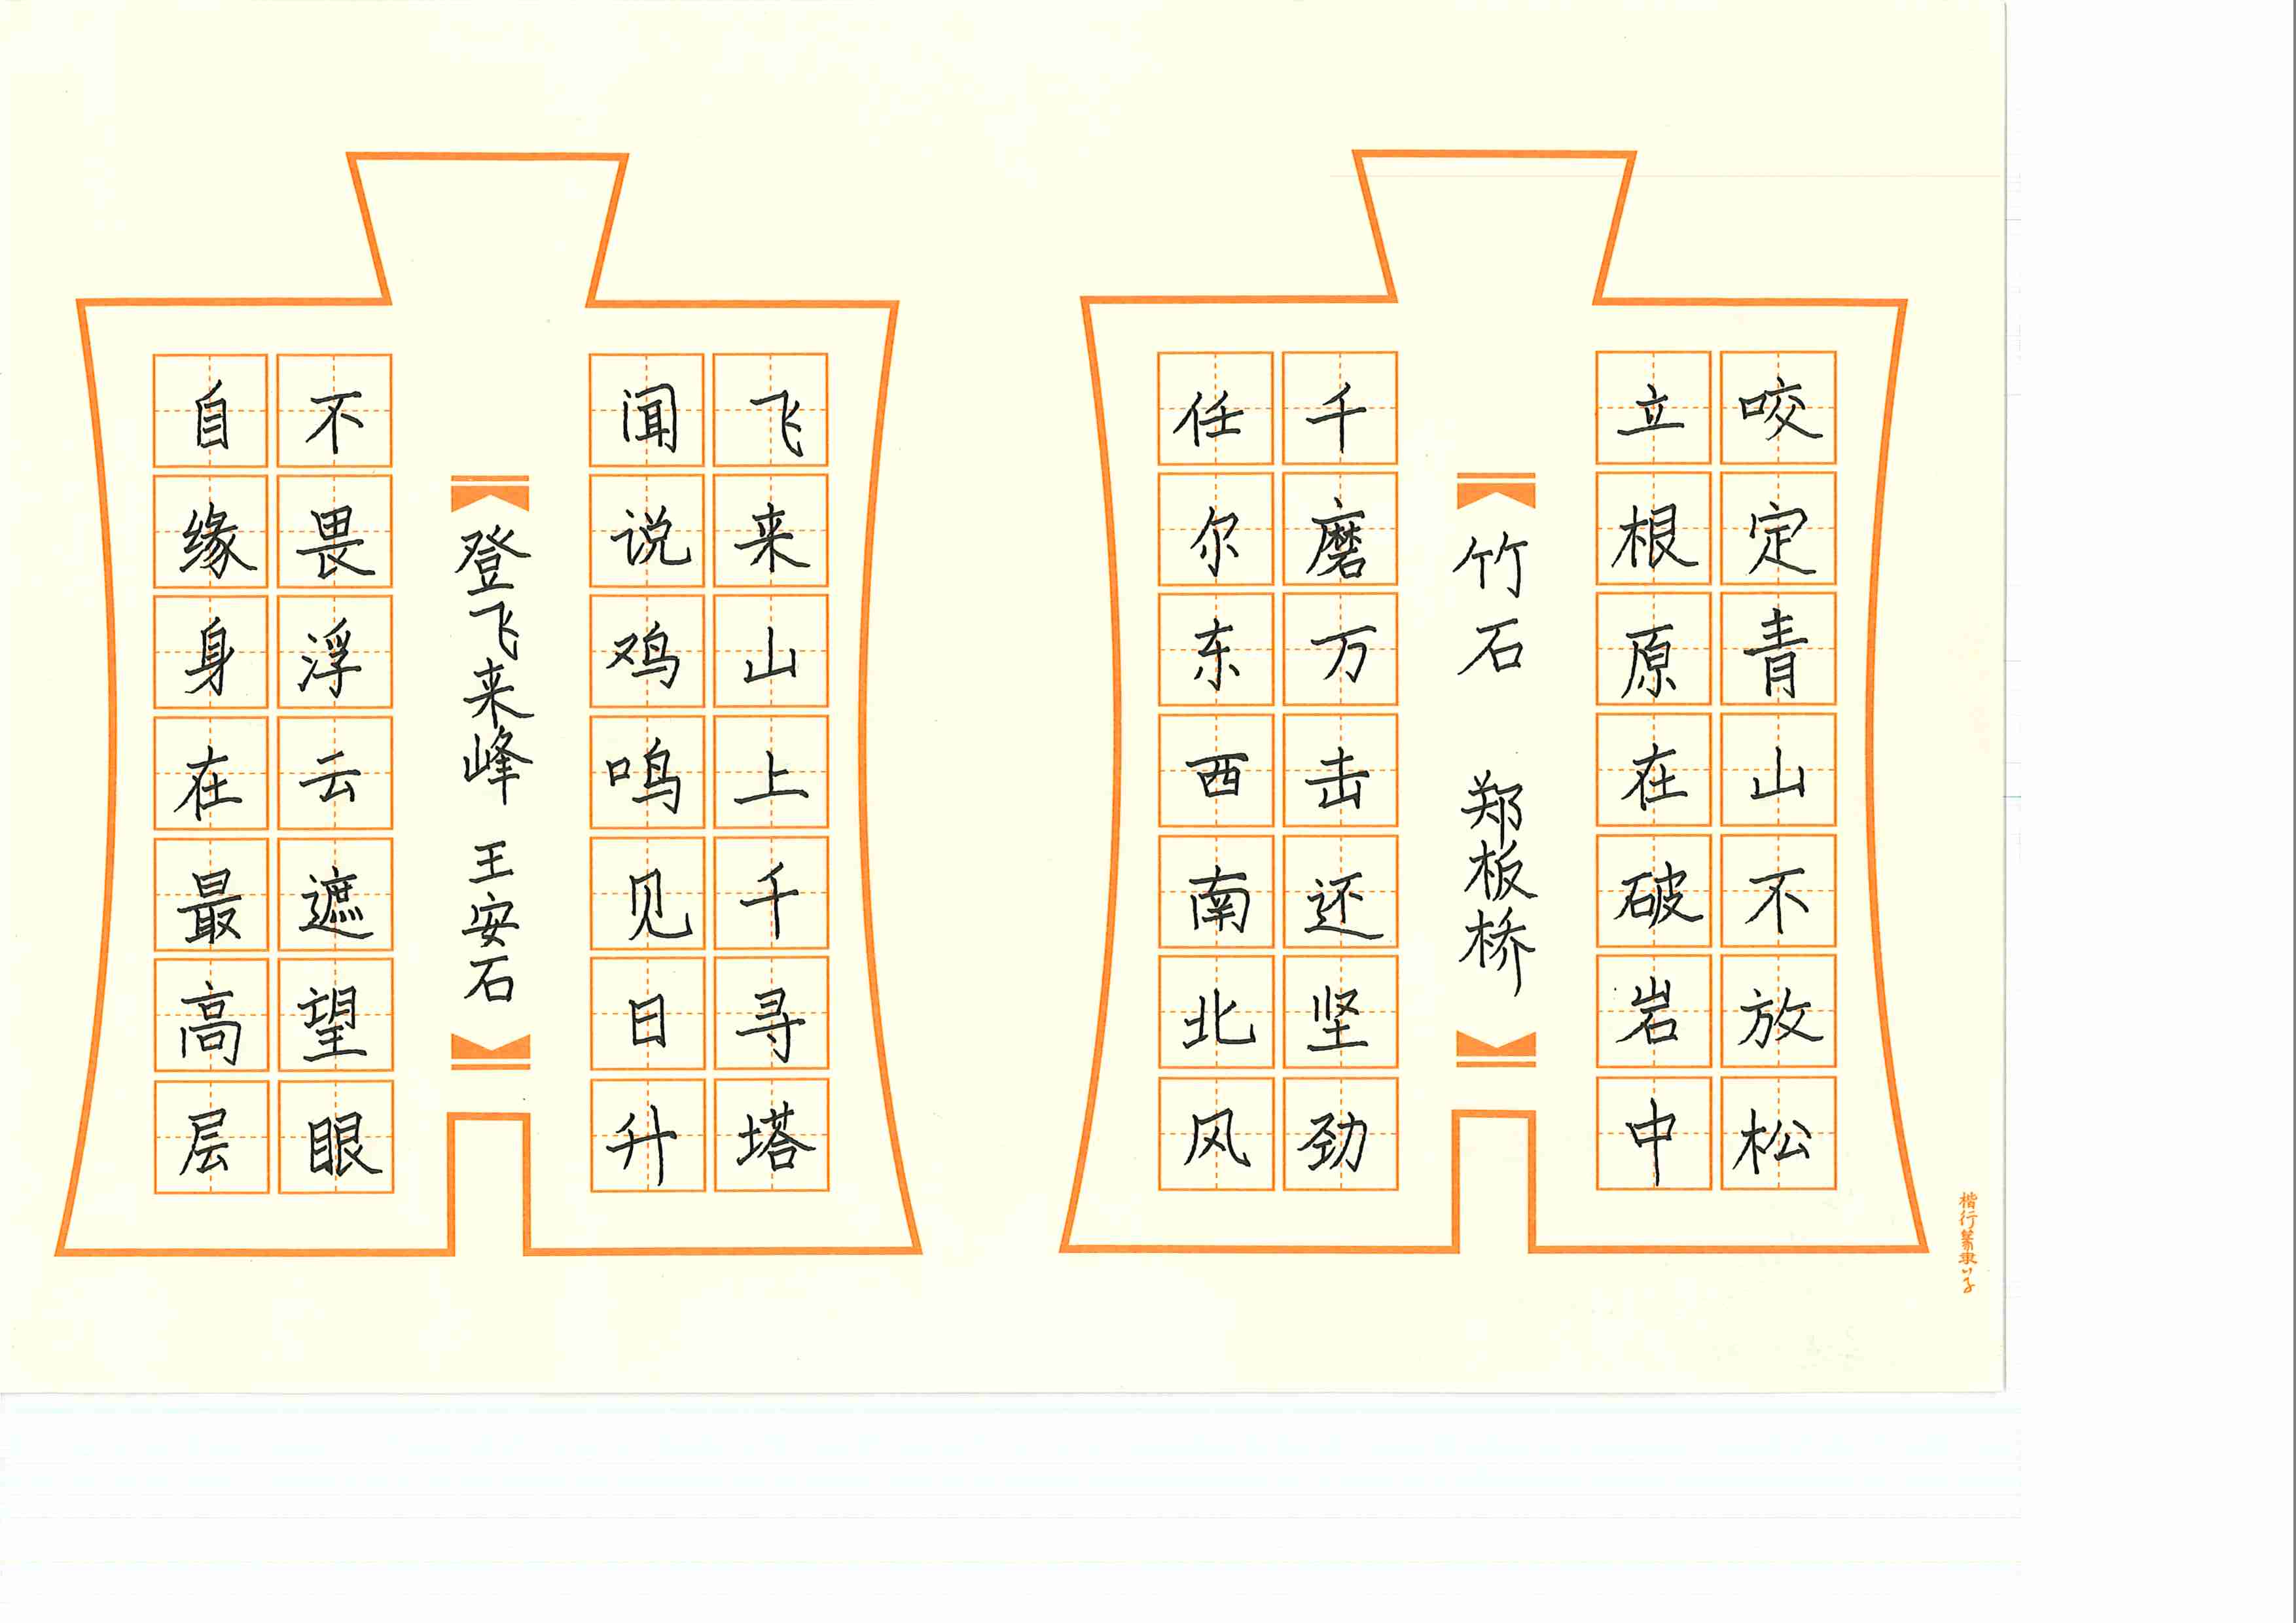 咬定青山不放松
立根原在破岩中
竹石 郑板桥
千磨万击还坚劲
任尔东西南北风
飞来山上千寻塔
闻说鸡鸣见日升
登飞来峰 王安石
不畏浮云遮望眼
自缘身在最高层
楷行篆隶